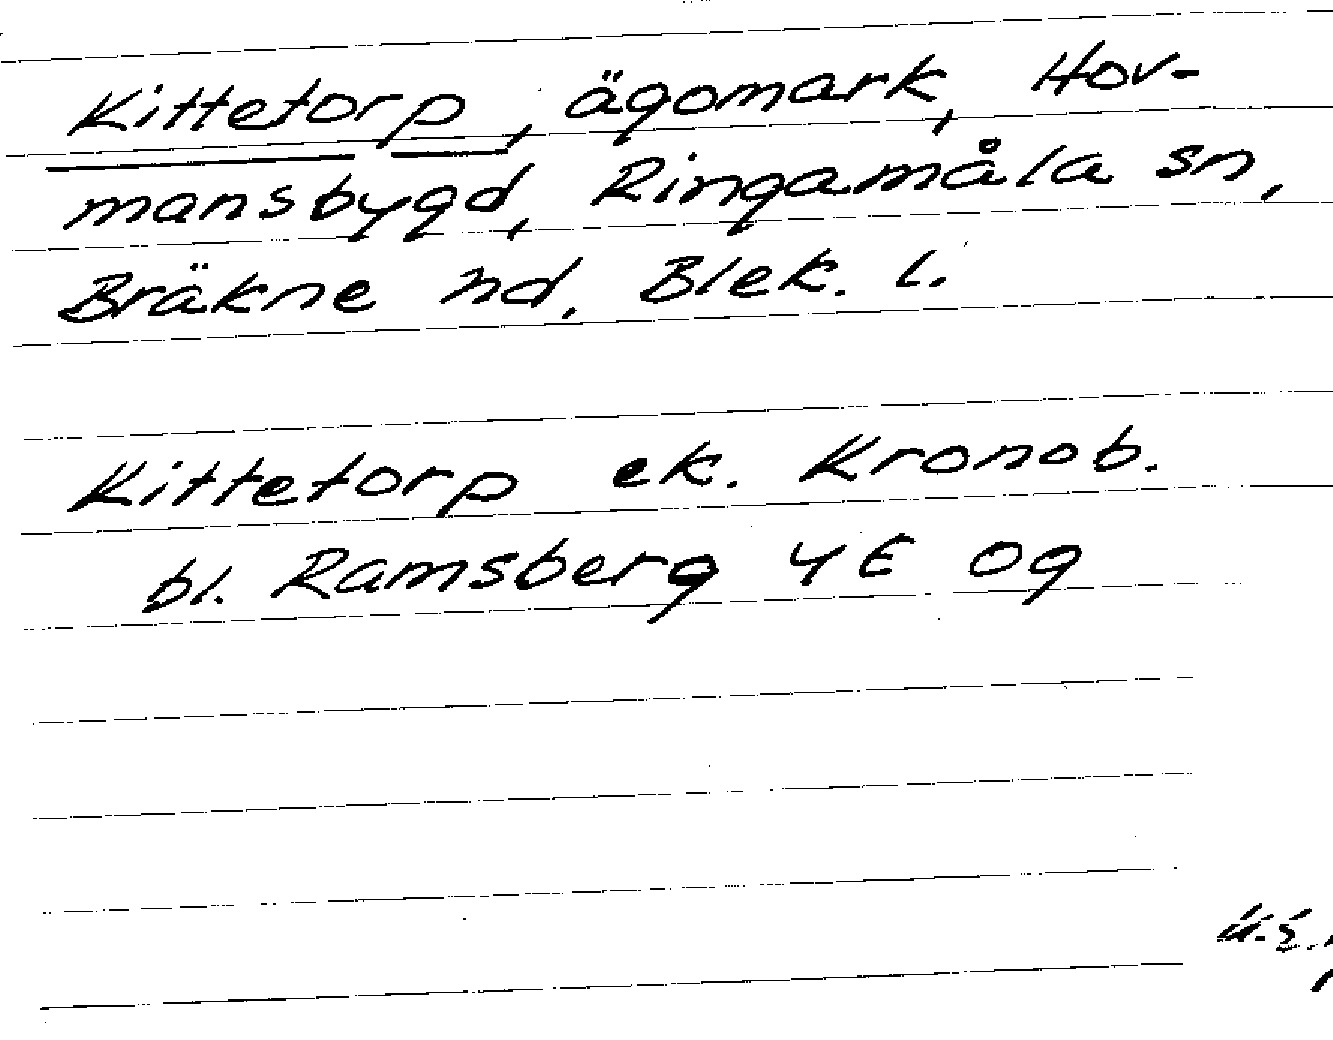 Kittetorp, ägomark, Hov-
mansbygd, Ringamåla sn,
Bräkne hd, Blek. l.
Kittetorp ek. Kronob.
bl. Ramsberg 4E 0g